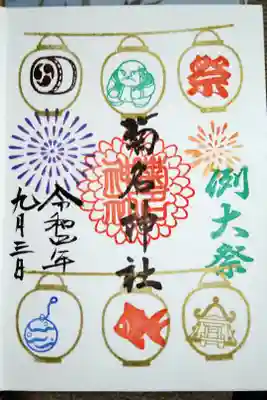 祭
例大祭
菊名神社
令和四年
九月三日